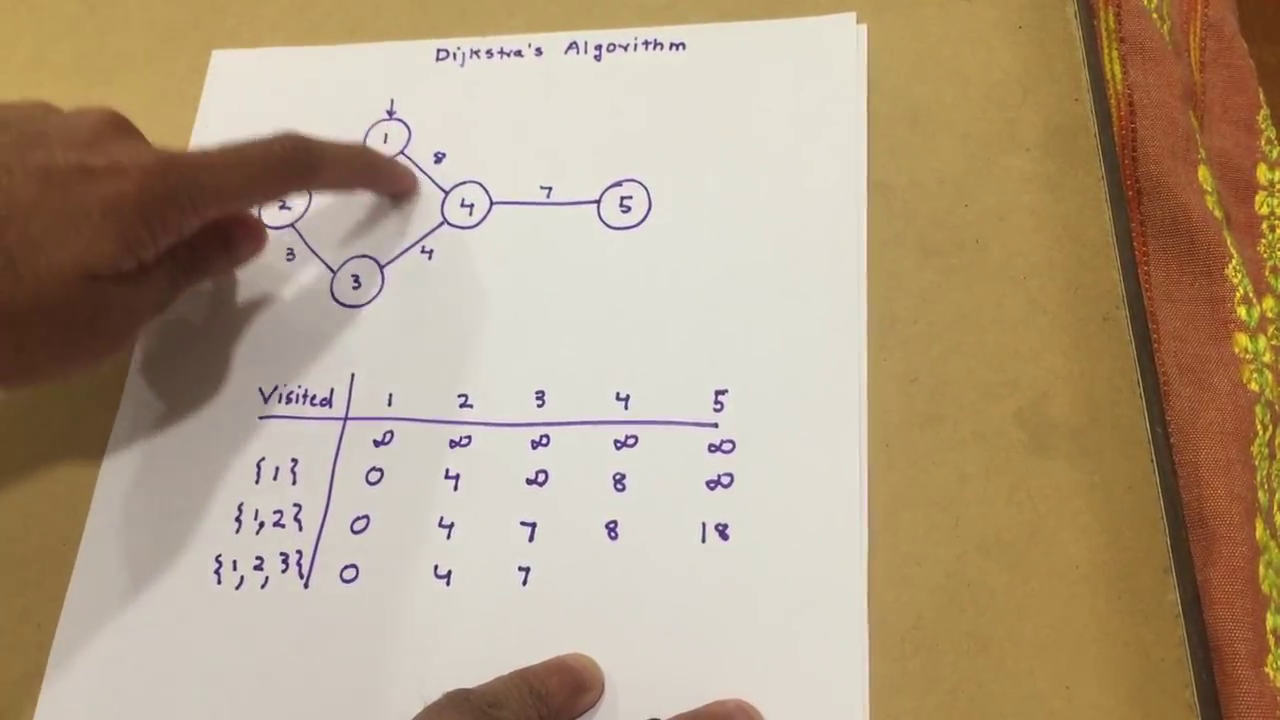 Dijkstra's Algorithm
1
8
2
4
7
5
3
4
3
Visited 1 2 3 4 5
∞ ∞ ∞ ∞ ∞
{1} 0 4 ∞ 8 ∞
{1,2} 0 4 7 8 18
{1,2,3} 0 4 7